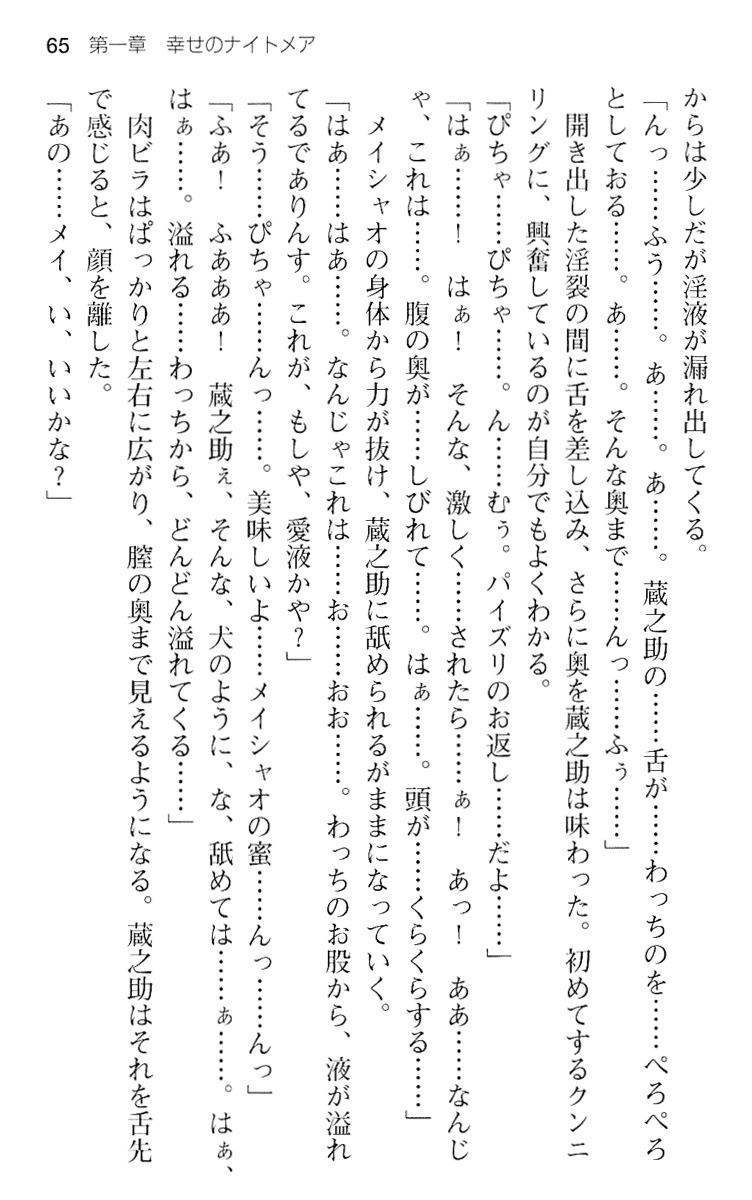 65　第一章　幸せのナイトメア
からは少しだが淫液が漏れ出してくる。
「んっ……ふう……。あ……。あ……。蔵之助の……舌が……わっちのを……ぺろぺろ
としておる……。あ……。そんな奥まで……んっ……ふぅ……」
　開き出した淫裂の間に舌を差し込み、さらに奥を蔵之助は味わった。初めてするクンニ
リングに、興奮しているのが自分でもよくわかる。
「ぴちゃ……ぴちゃ……。ん……むぅ。パイズリのお返し……だよ……」
「はぁ……！　はぁ！　そんな、激しく……されたら……ぁ！　あっ！　ああ……なんじ
ゃ、これは……。腹の奥が……しびれて……。はぁ……。頭が……くらくらする……」
　メイシャオの身体から力が抜け、蔵之助に舐められるがままになっていく。
「はあ……はあ……。なんじゃこれは……お……おお……。わっちのお股から、液が溢れ
てるでありんす。これが、もしや、愛液かや？」
「そう……ぴちゃ……んっ……。美味しいよ……メイシャオの蜜……んっ……んっ」
「ふあ！　ふあああ！　蔵之助ぇ、そんな、犬のように、な、舐めては……ぁ……。はぁ、
はぁ……。溢れる……わっちから、どんどん溢れてくる……」
　肉ビラはぱっかりと左右に広がり、膣の奥まで見えるようになる。蔵之助はそれを舌先
で感じると、顔を離した。
「あの……メイ、い、いいかな？」